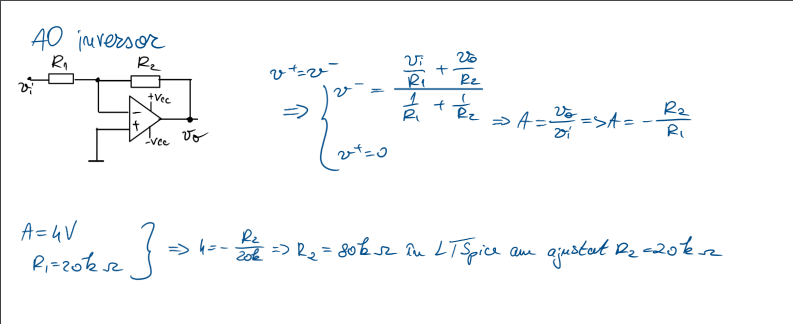 AO inversor
R1 R2
vi
+Vcc
- +
-Vcc
vo
v⁺=v⁻
⇒ { v⁻ = (vi/R1 + vo/R2) / (1/R1 + 1/R2) ⇒ A = vo/vi => A = - R2/R1
v⁺=0
A=4V
R1=20k Ω } ⇒ 4=- R2/20k ⇒ R2 = 80k Ω în LTSpice am ajustat R2=20k Ω